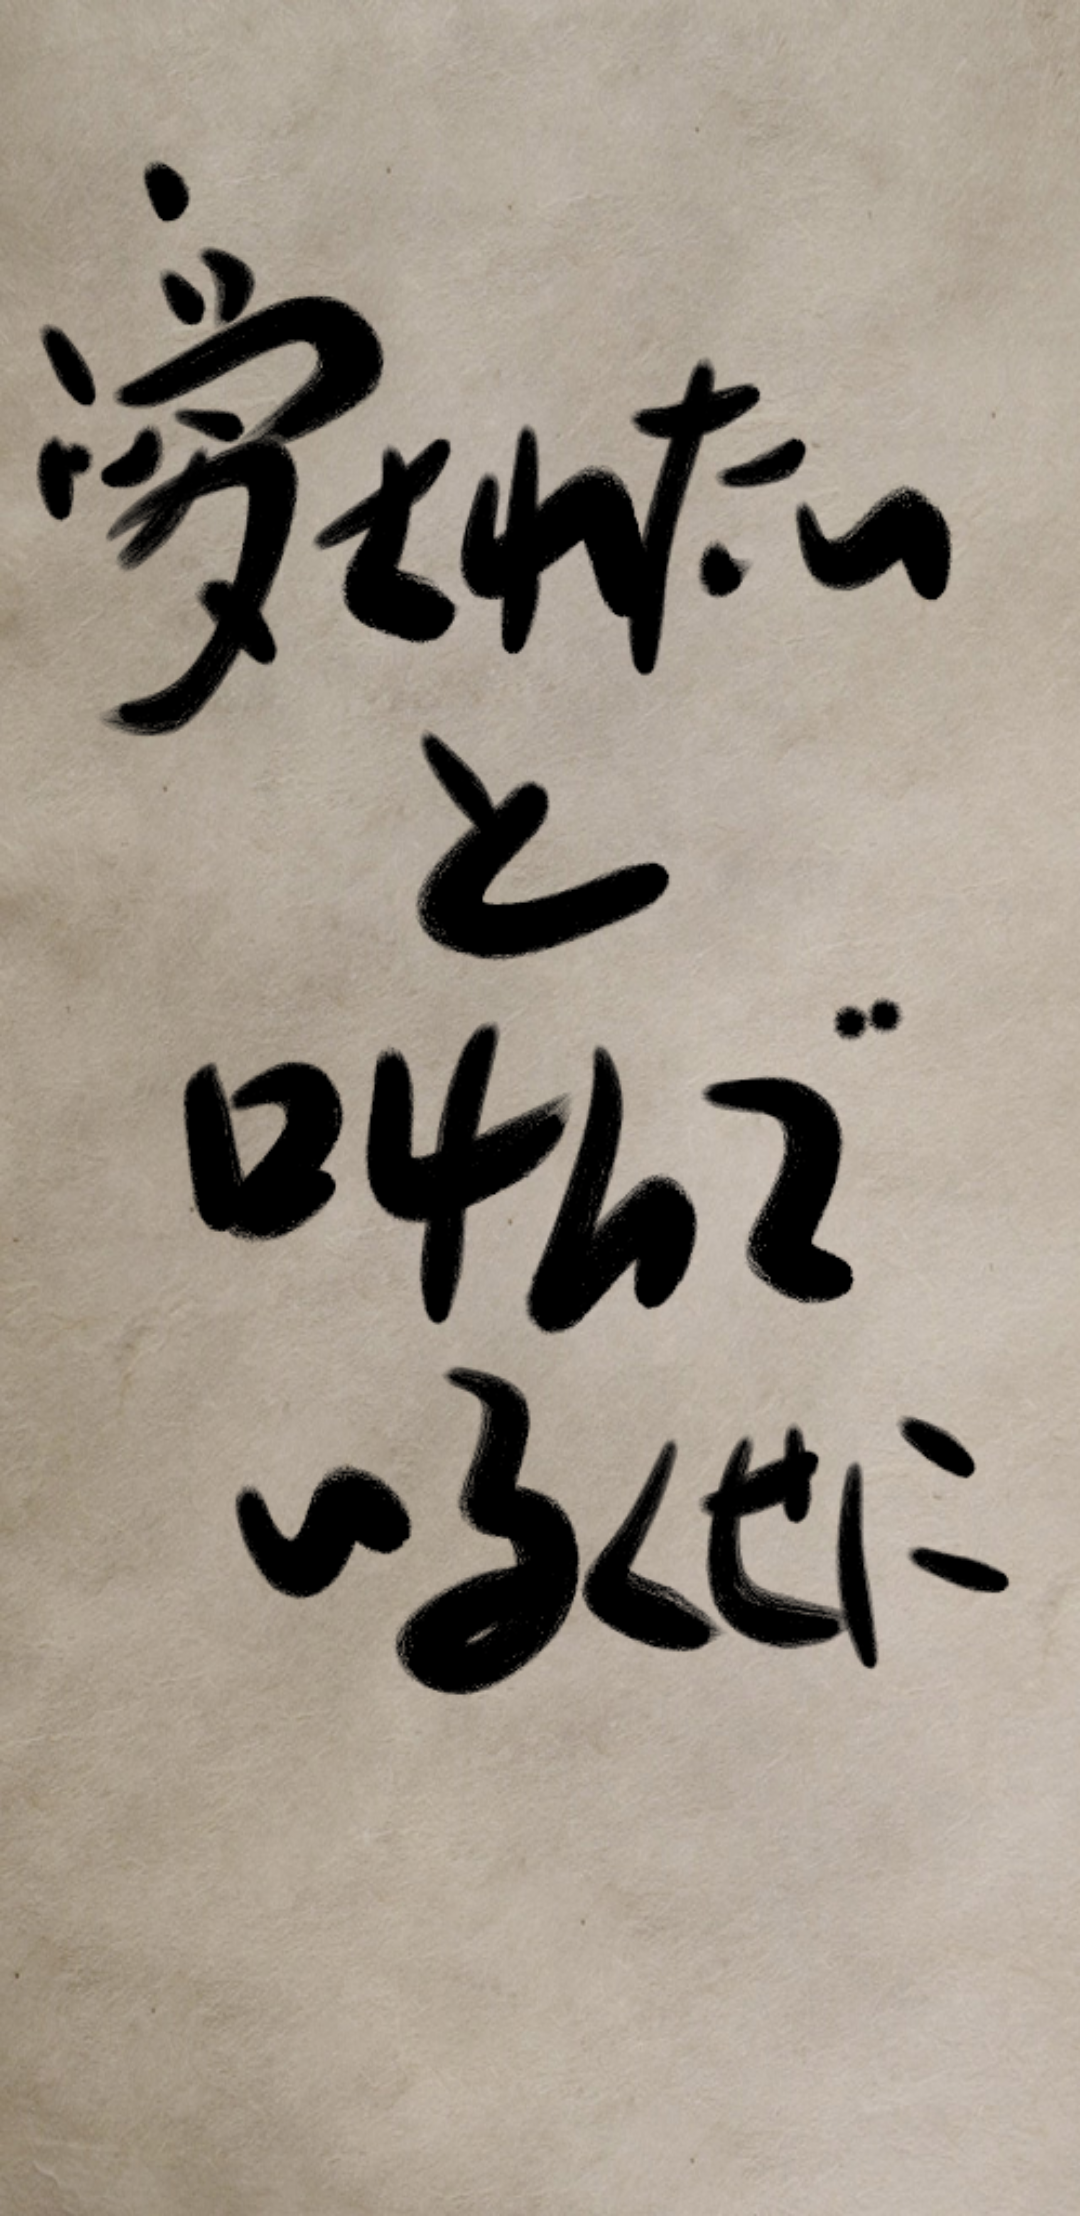 愛されたい
と
叫んで
いるくせに